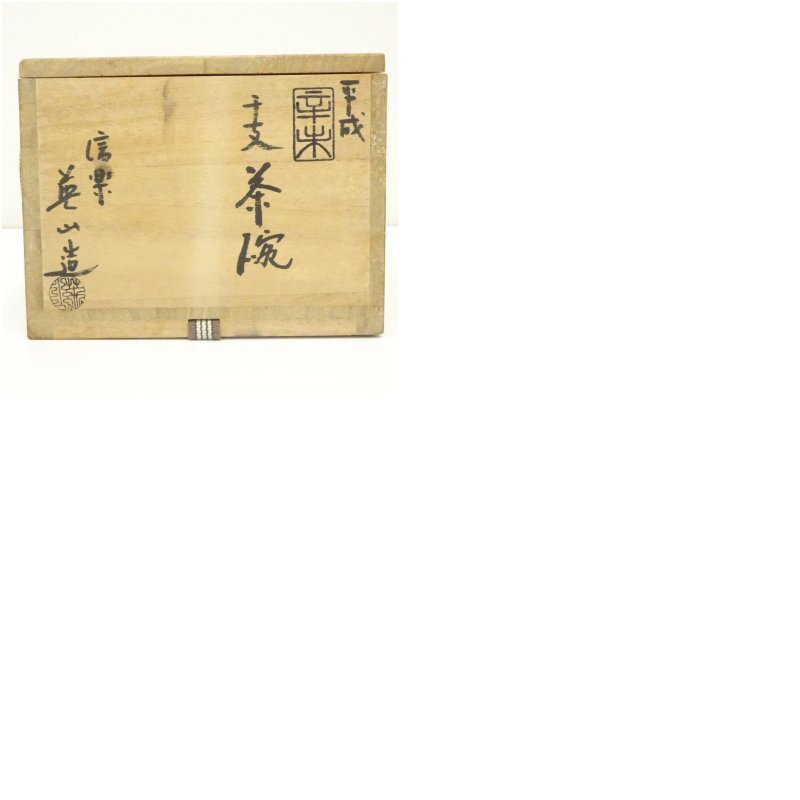 平成
辛未
干支
茶碗
信楽
英山造